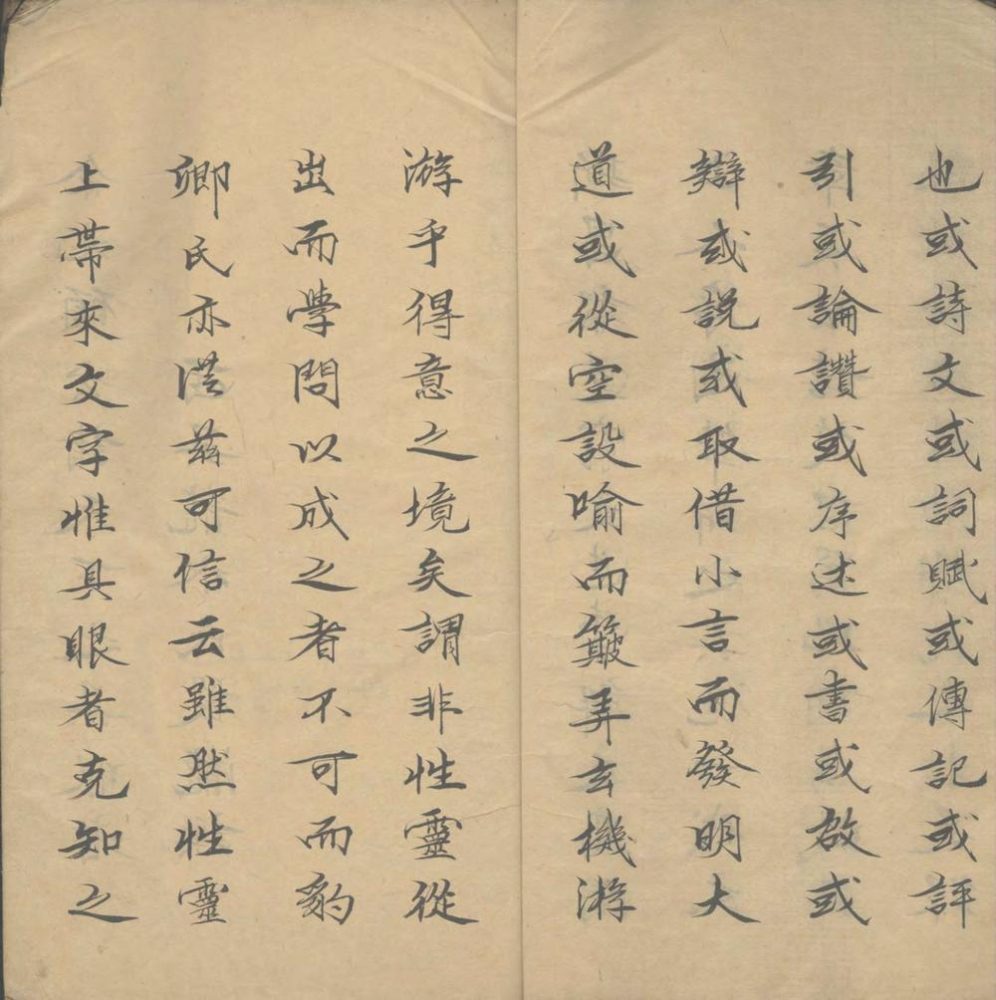 也或詩文或詞賦或傳記或評
引或論讚或序述或書或啟或
辯或説或取借小言而發明大
道或從空設喻而簸弄玄機游
游乎得意之境矣謂非性靈從
出而學問以成之者不可而豹
卿氏亦從茲可信云雖然性靈
上帶來文字惟具眼者克知之